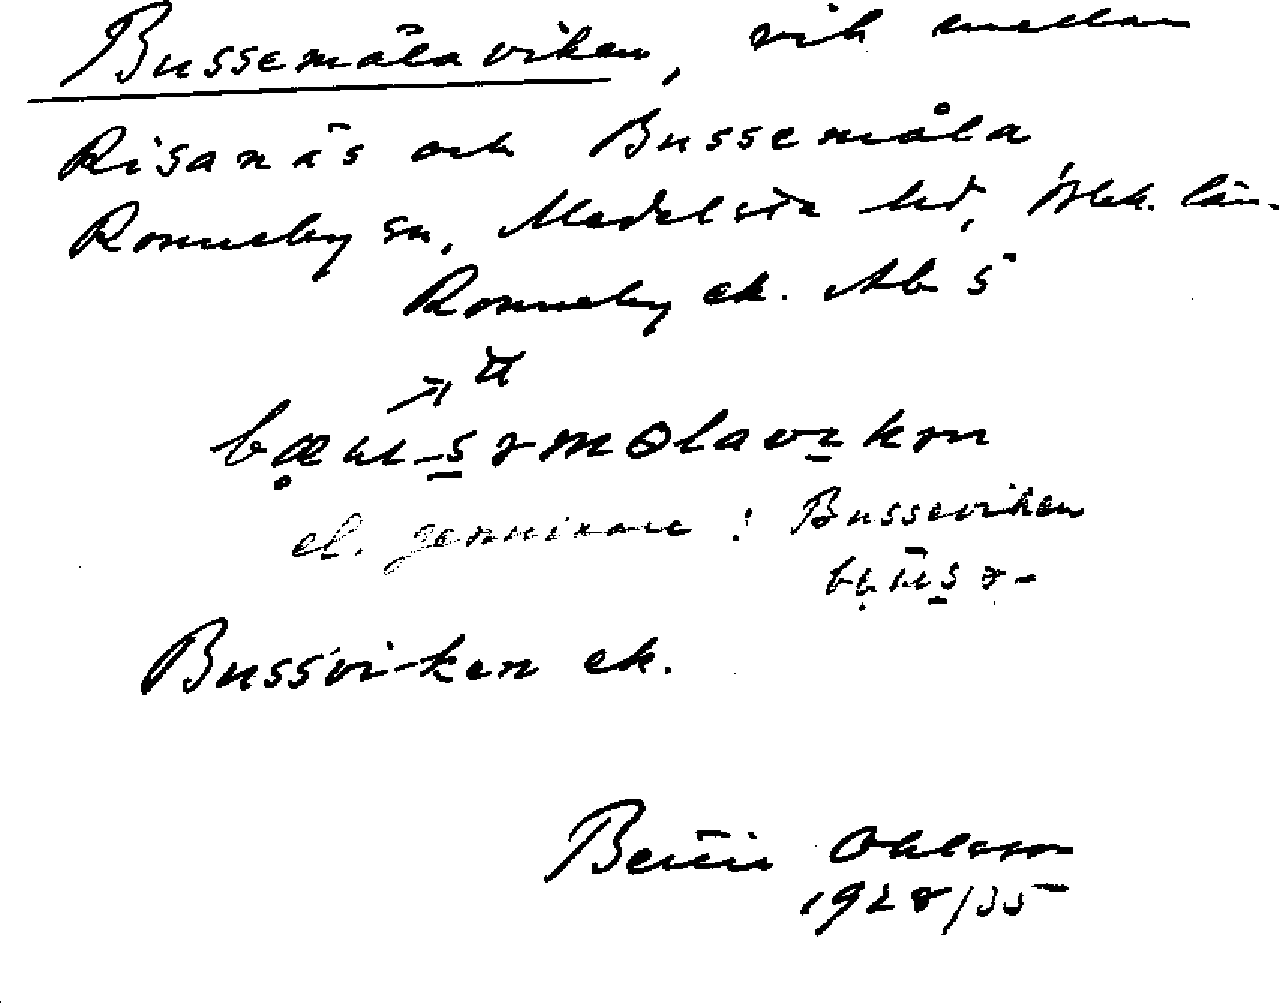 Bussemålaviken, vik mellan
Risanäs och Bussemåla
Ronneby sn, Medelsta hd, Blek. län.
Ronneby ek. Ab 5
el. gemenare: Busseviken
Bussviken ek.
Bertil Ohlsson
1928/35